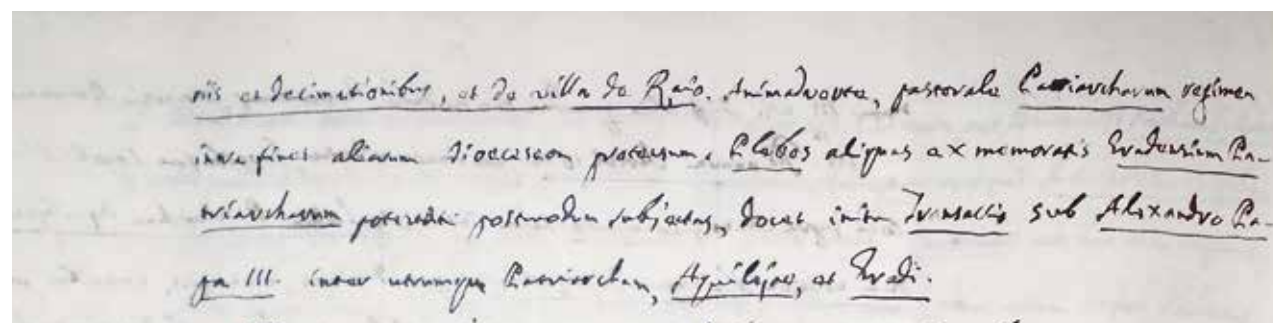 niis et decimationibus, et de villa de Raio. Animadverte, pastorale Patriarcharum regimen
intra fines aliarum Dioeceseon protensum. Plebes aliquas ex memoratis Gradensium Pa-
triarcharum potestati postmodum subjectas, docet inita Transactio sub Alexandro Pa-
pa III. inter utrumque Patriarcham, Aquilejae, et Gradi.